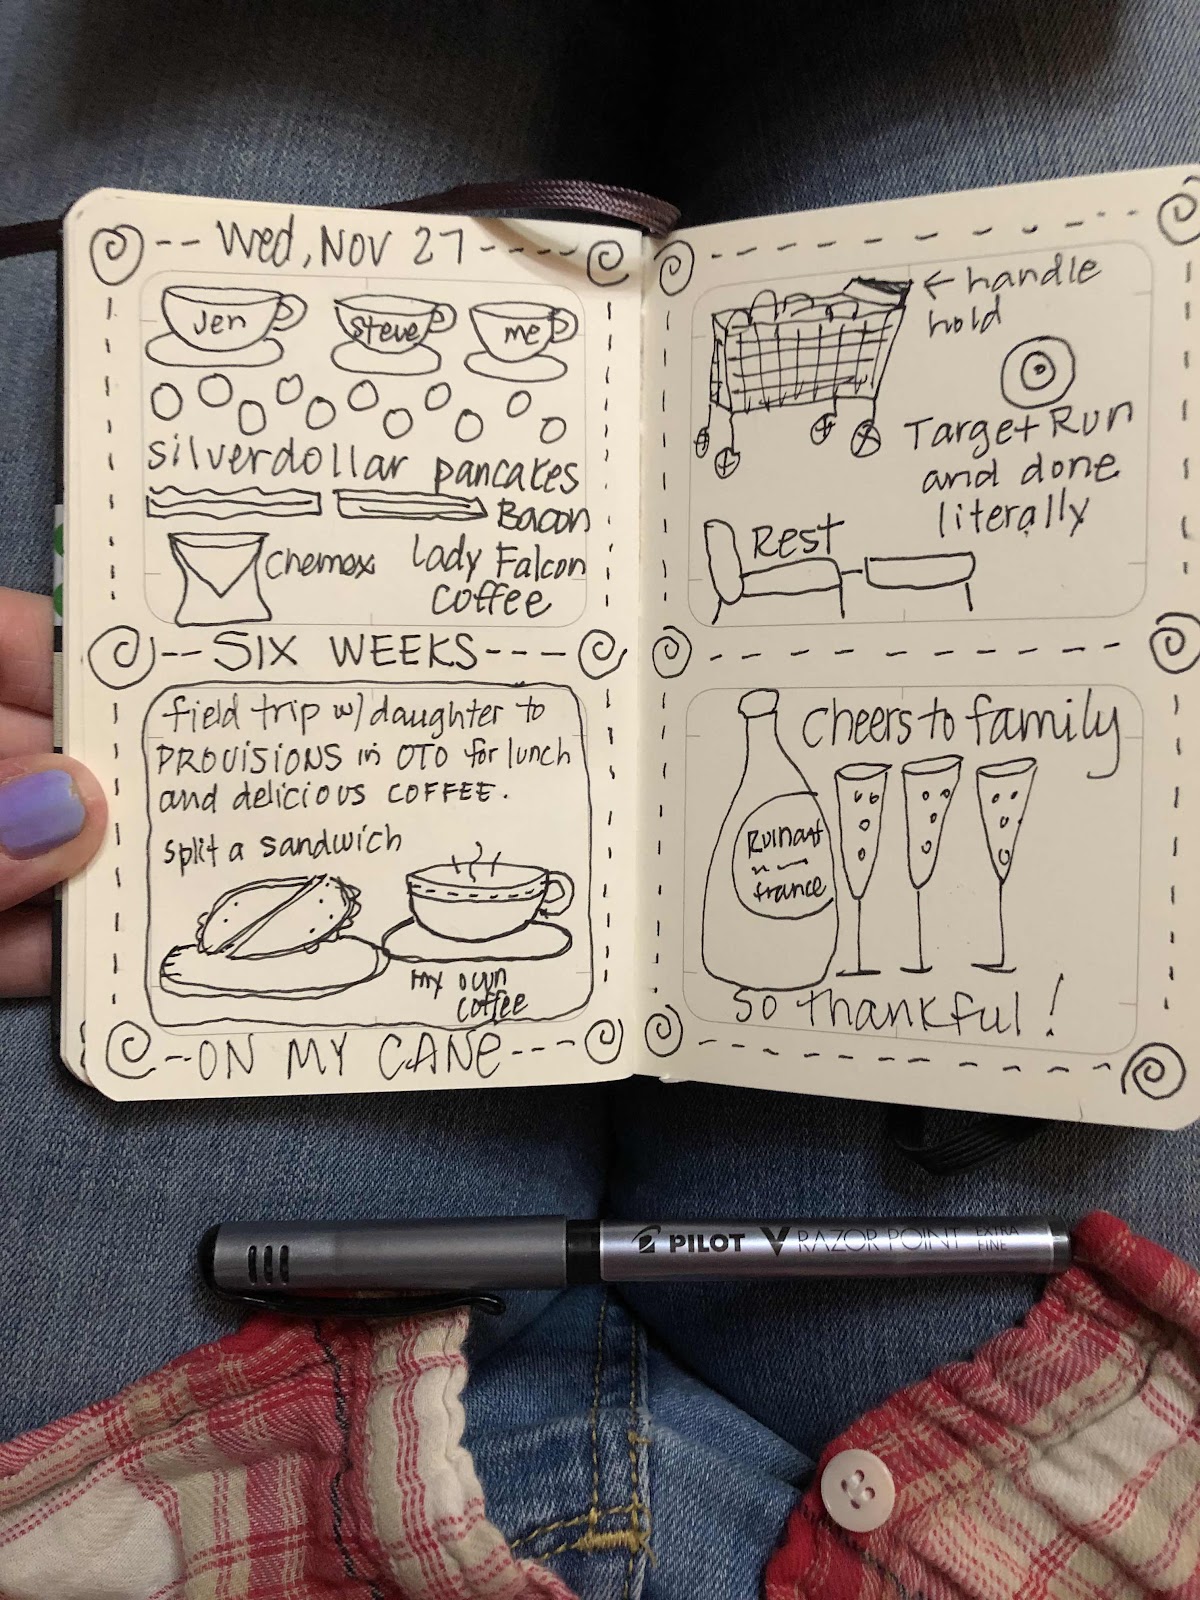 Wed, Nov 27
Jen
Steve
me
silverdollar pancakes
Bacon
Chemex
Lady Falcon
Coffee
SIX WEEKS
field trip w/ daughter to
PROVISIONS in OTO for lunch
and delicious COFFEE.
split a sandwich
my own
coffee
ON MY CANE
← handle
hold
Target Run
and done
literally
Rest
Cheers to family
Ruinart
france
so thankful!
PILOT V RAZOR POINT EXTRA
FINE